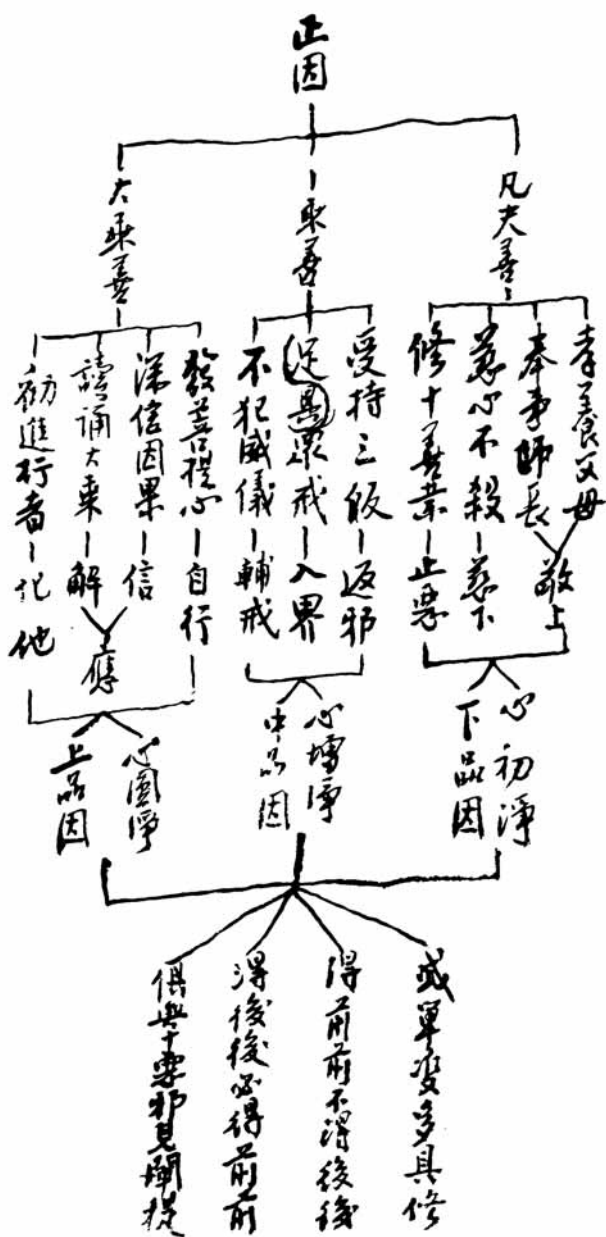 正因
凡夫善
孝養父母
奉事師長
敬上
慈心不殺－慈下
修十善業－止惡
心初淨
下品因
二乘善
受持三皈－返邪
足具眾戒－入界
不犯威儀－輔戒
心增淨
中品因
大乘善
發菩提心－自行
深信因果－信
讀誦大乘－解
勸進行者－化他
心圓淨
上品因
或單雙多具修
得前前不得後後
得後後必得前前
俱無十惡邪見闡提